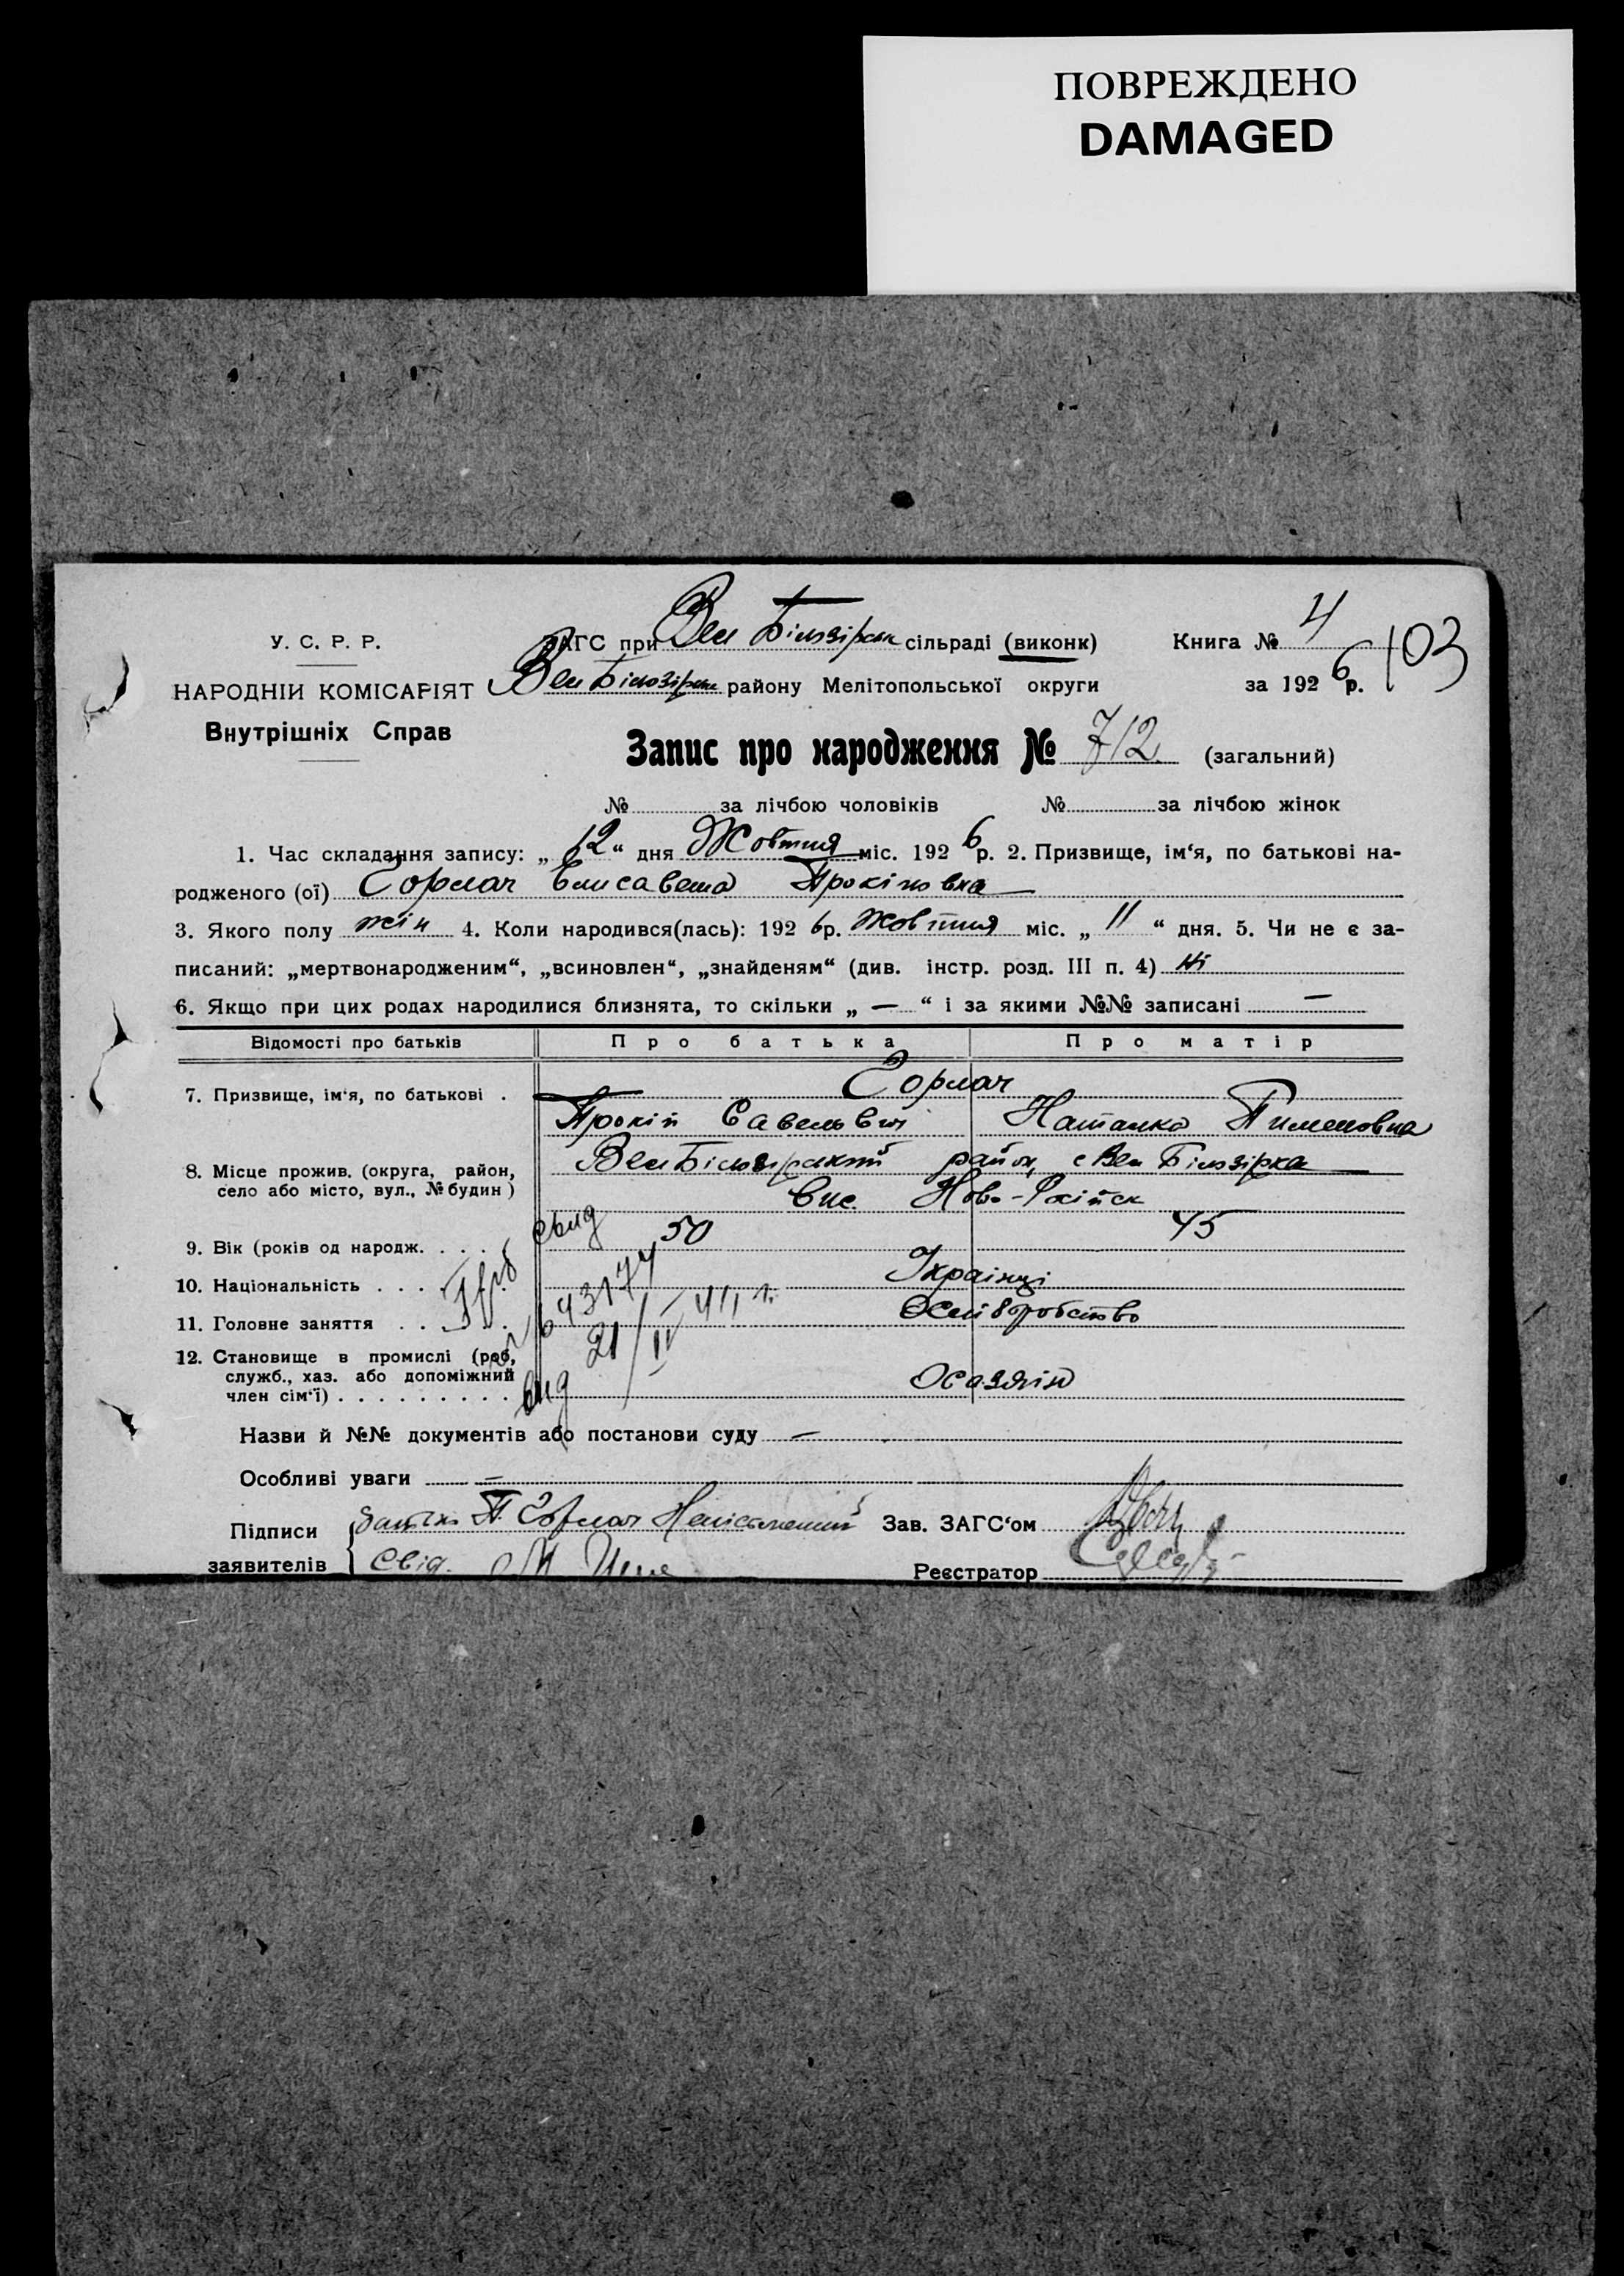 ПОВРЕЖДЕНО
DAMAGED
У. С. Р. Р.
НАРОДНІЙ КОМІСАРІЯТ
Внутрішніх Справ
ЗАГС при Вел Білозірськ сільраді (виконк)
Вел Білозірськ району Мелітопольської округи
Книга № 4
за 1926 р.
103
Запис про народження № 712 (загальний)
№ за лічбою чоловіків № за лічбою жінок
1. Час складання запису: „ 12 “ дня Жовтня міс. 1926 р. 2. Призвище, ім‘я, по батькові на-
родженого (ої) Горлач Єлисавета Прокіповна
3. Якого полу жін 4. Коли народився(лась): 1926 р. Жовтня міс. „ 11 “ дня. 5. Чи не є за-
писаний: „мертвонародженим“, „всиновлен“, „знайденям“ (див. інстр. розд. III п. 4) Ні
6. Якщо при цих родах народилися близнята, то скільки „ — “ і за якими №№ записані —
Відомості про батьків Про батька Про матір
7. Призвище, ім‘я, по батькові . Горлач
Прокіп Савельвич Наталка Пименовна
8. Місце прожив. (округа, район,
село або місто, вул., № будин) Вел Білозірський район, с Вел Білозірка
9. Вік (років од народж. . . . 50 45
10. Національність . . . Українці
11. Головне заняття . . .
12. Становище в промислі (роб,
служб., хаз. або допоміжний
член сім‘ї) . . . . . . . . .
643174
21/IV 41 г.
Назви й №№ документів або постанови суду —
Особливі уваги —
Підписи
заявителів
батько П. Горлач Неписьменний
свід.
Зав. ЗАГС‘ом
Реєстратор